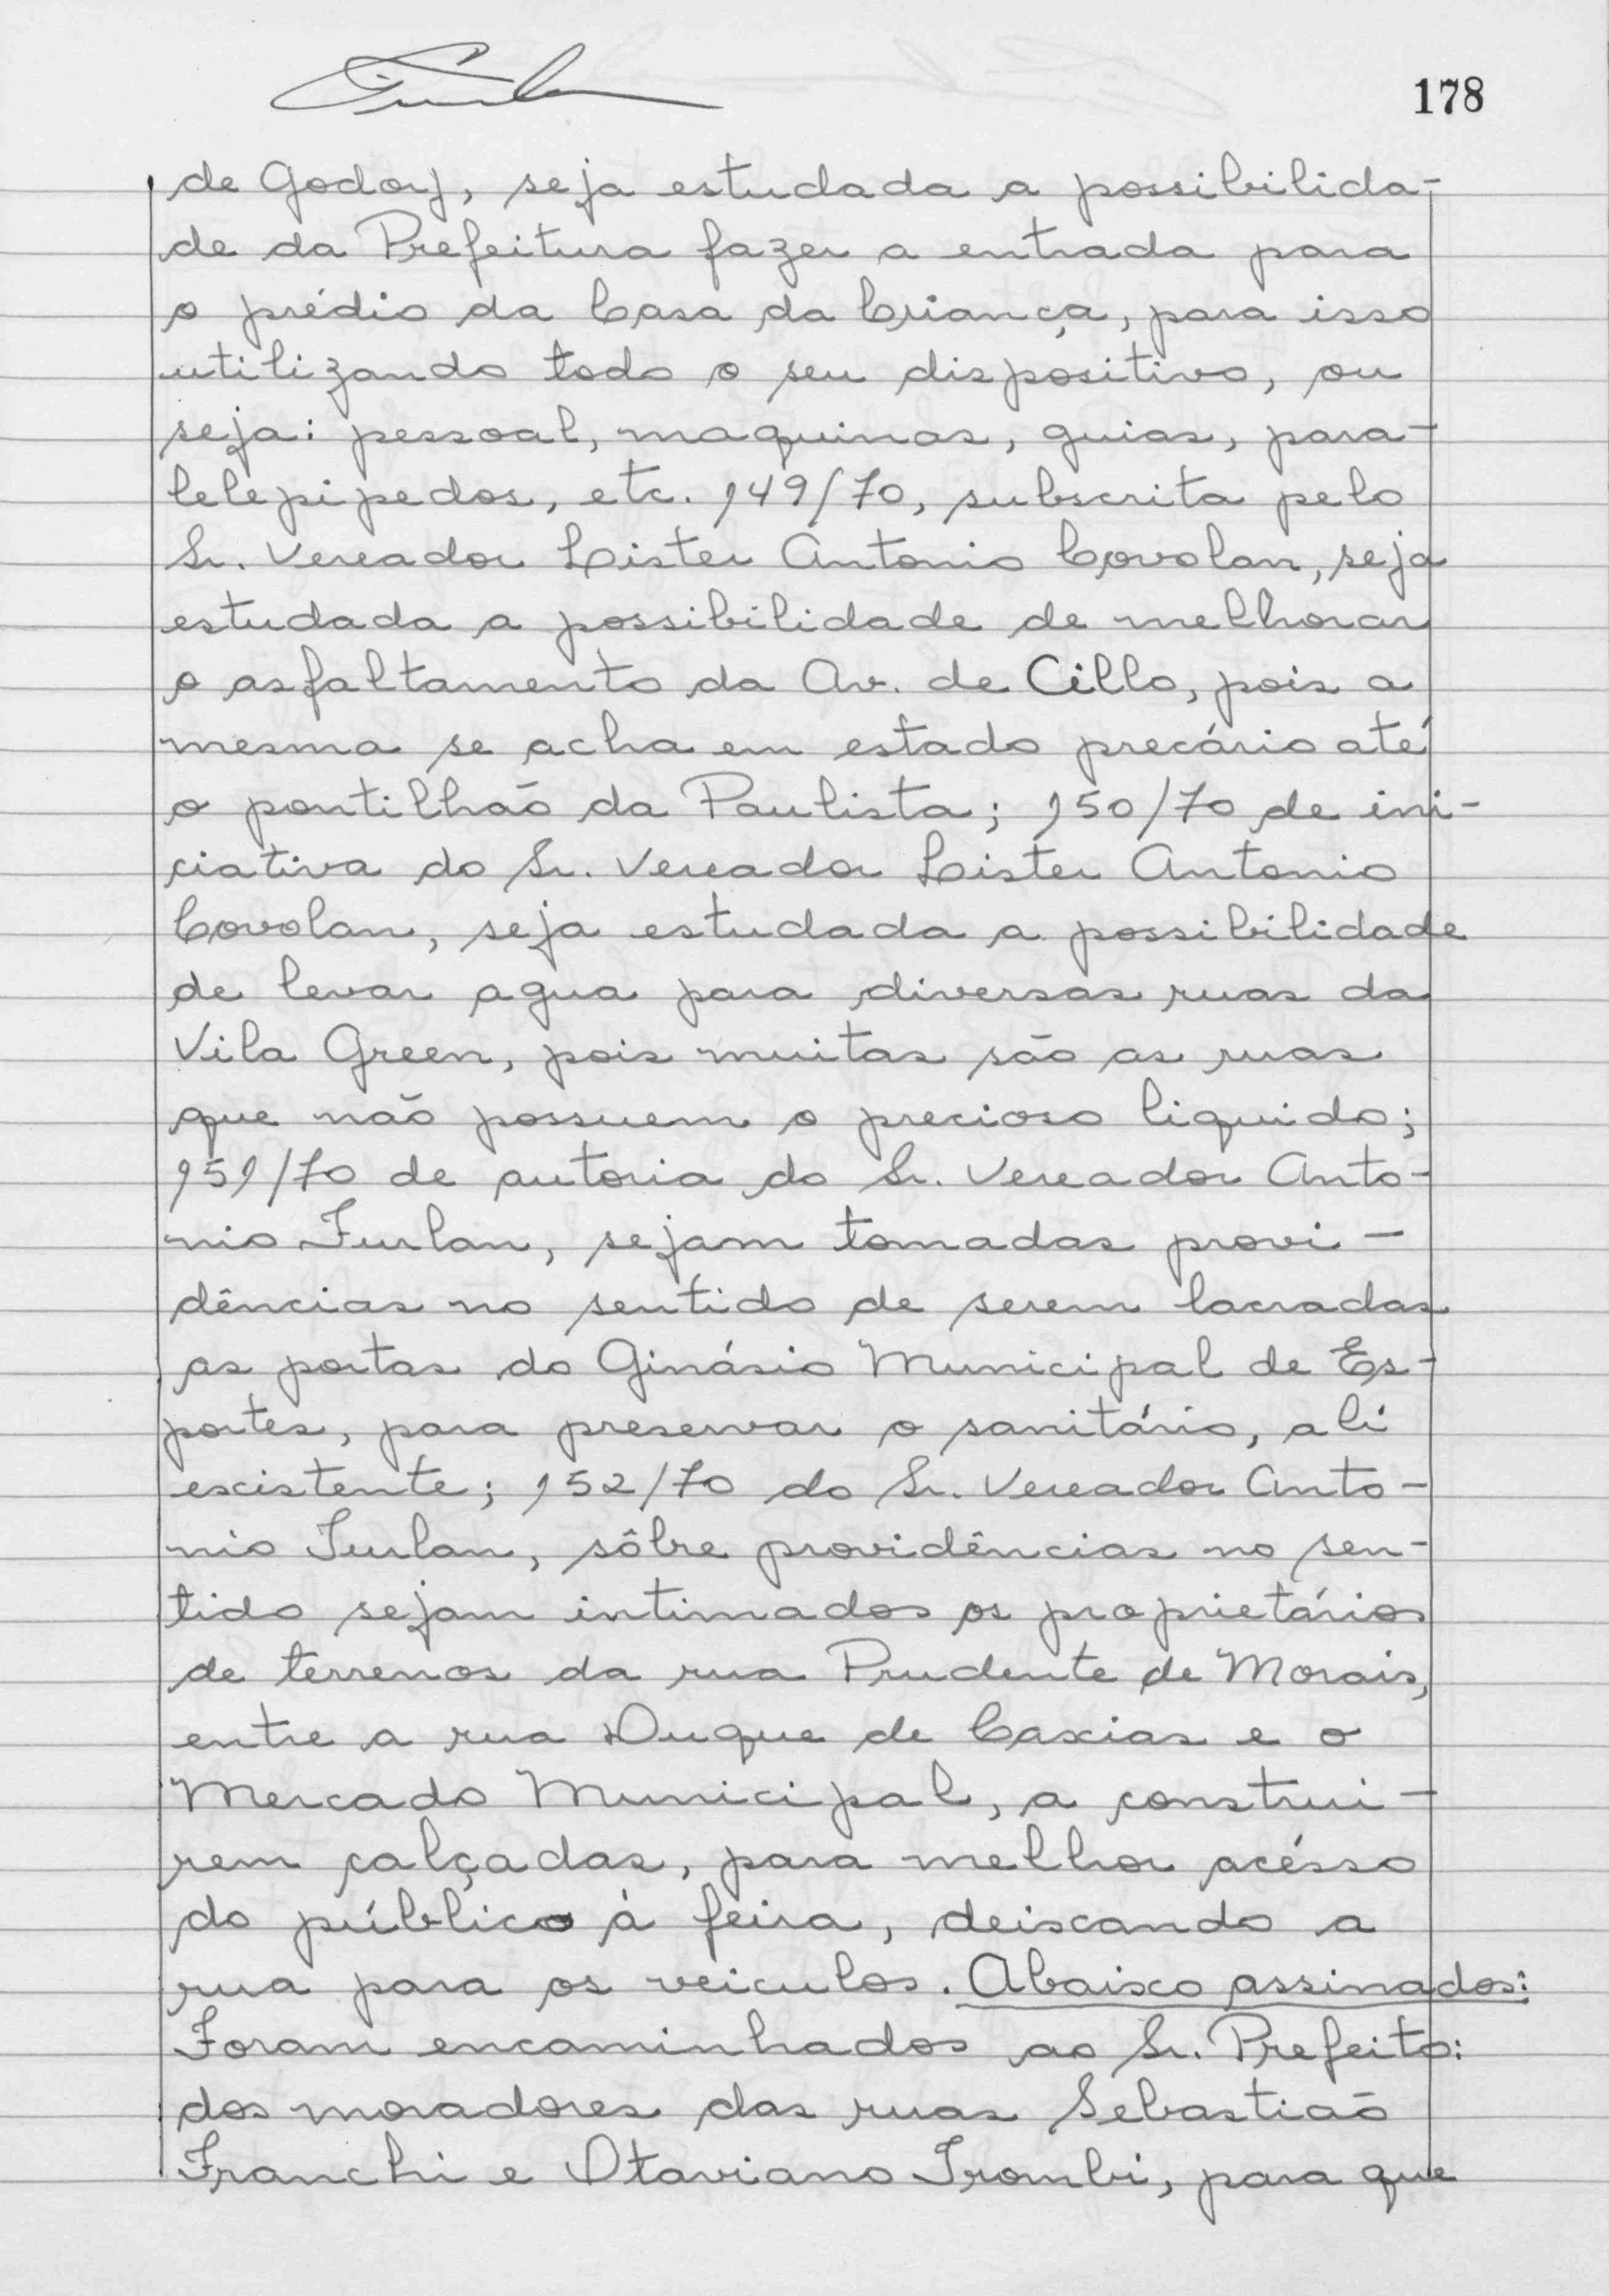 178
de Godoy, seja estudada a possibilida-
de da Prefeitura fazer a entrada para
o prédio da Casa da Criança, para isso
utilizando todo o seu dispositivo, ou
seja: pessoal, maquinas, guias, para-
lelepipedos, etc. 149/70, subscrita pelo
Sr. Vereador Lister Antonio Covolan, seja
estudada a possibilidade de melhorar
o asfaltamento da Av. de Cillo, pois a
mesma se acha em estado precário até
o pontilhão da Paulista; 150/70 de ini-
ciativa do Sr. Vereador Lister Antonio
Covolan, seja estudada a possibilidade
de levar agua para diversas ruas da
Vila Green, pois muitas são as ruas
que não possuem o precioso liquido;
151/70 de autoria do Sr. Vereador Anto-
nio Furlan, sejam tomadas provi-
dências no sentido de serem lacradas
as portas do Ginásio Municipal de Es-
portes, para preservar o sanitário, alí
existente; 152/70 do Sr. Vereador Anto-
nio Furlan, sôbre providências no sen-
tido sejam intimados os proprietários
de terrenos da rua Prudente de Morais,
entre a rua Duque de Caxias e o
Mercado Municipal, a construi-
rem calçadas, para melhor acésso
do público à feira, deixando a
rua para os veiculos. Abaixo assinados:
Foram encaminhados ao Sr. Prefeito:
dos moradores das ruas Sebastião
Franchi e Otaviano Trombi, para que